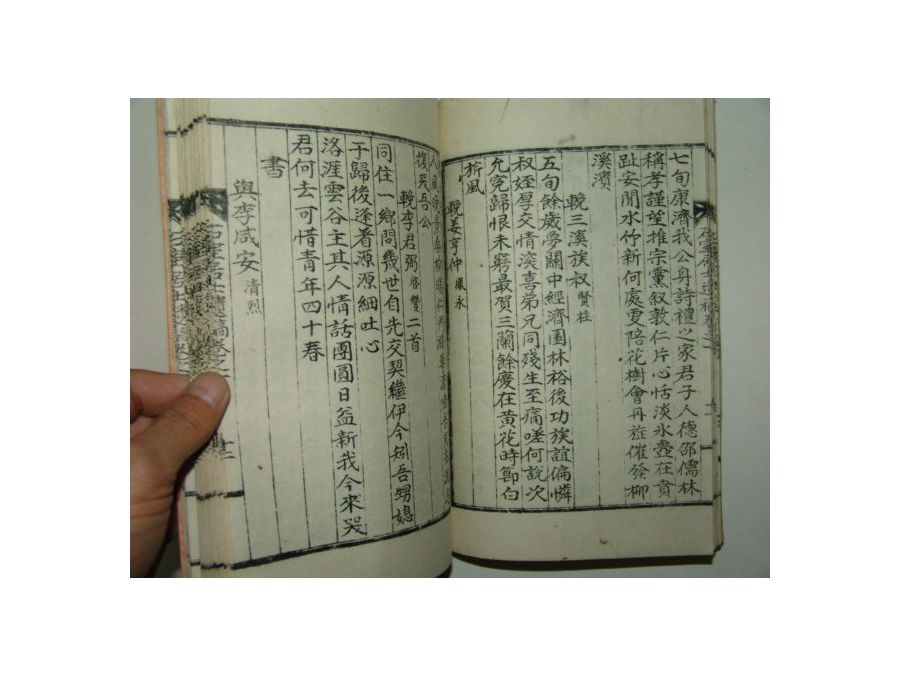 七旬康濟我公身詩禮之家君子人德邵儒林
稱孝謹望推宗黨叙敦仁片心恬淡氷壺在貴
趾安閒水竹新何處更陪花樹會再旋催發柳
溪濱
輓三溪族叔 賢柱
五旬餘歲夢關中經濟園林裕後功族誼偏憐
叔姪厚交情渓喜弟兄同殘生至痛嗟何說次
允寃歸恨未窮最賀三蘭餘慶在黃花時節白
旂風
輓姜亨仲 鳳永
復哭吾公
輓李君弼 啓賛 二首
同住一鄉問幾世自先交契繼伊今矧吾甥媳
于歸後逢着源源細吐心
洛涯雲谷主其人情話團圓日益新我今來哭
君何去可惜青年四十春
書
與李咸安 清烈